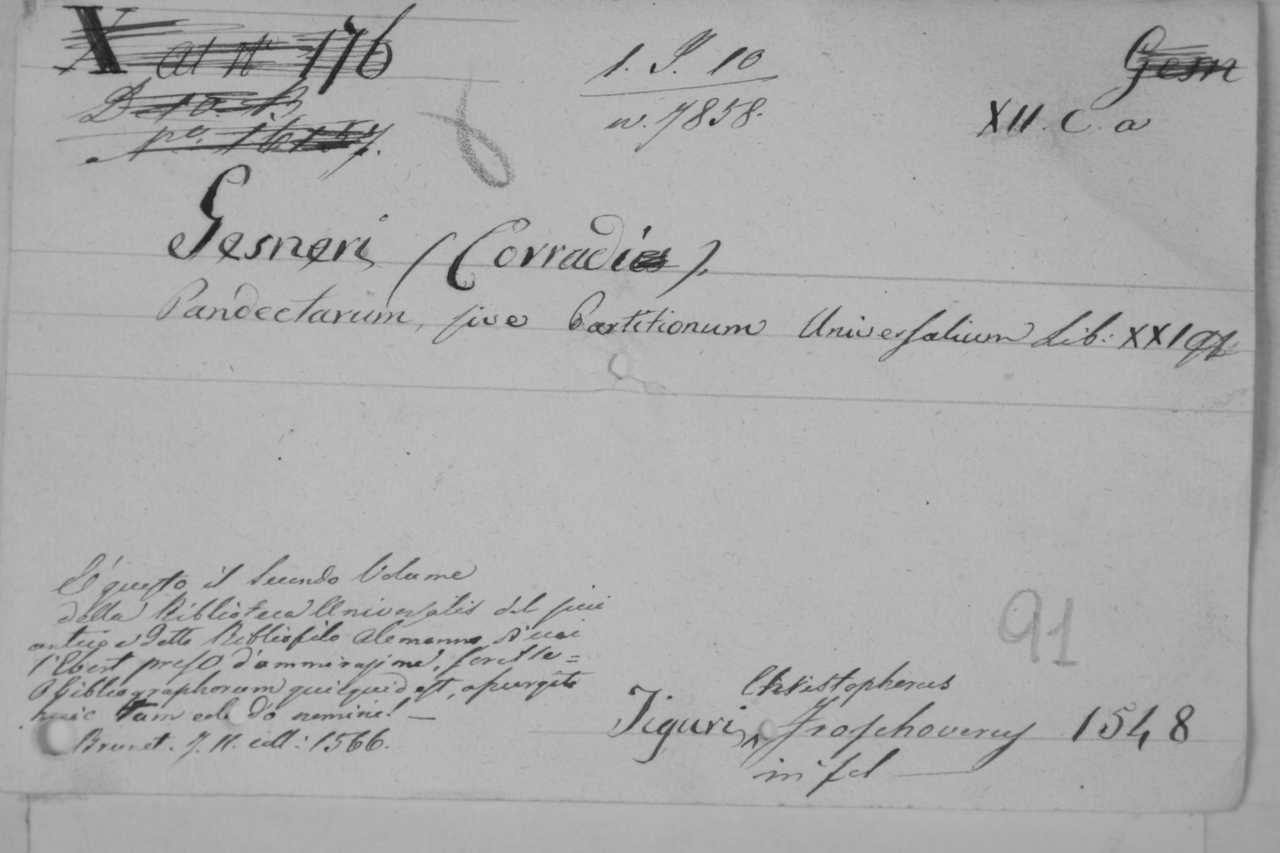 X al N° 176
1. J. 10
n. 7858.
Gesn
XII. C. a
Gesneri (Corradi).
Pandectarum, sive Partitionum Universalium Lib: XXI
È questo il Secondo Volume
della Biblioteca Universalis del più
antico e dotto Bibliofilo Alemanno, di cui
l'Ebert preso d'ammirazione, scrisse =
O Bibliographorum quidquid est, assurgite
huic tam colendo nomini! —
Brunet. T. II. coll: 1566.
91
Christopherus
Tiguri, Froschoverus 1548
in fol —